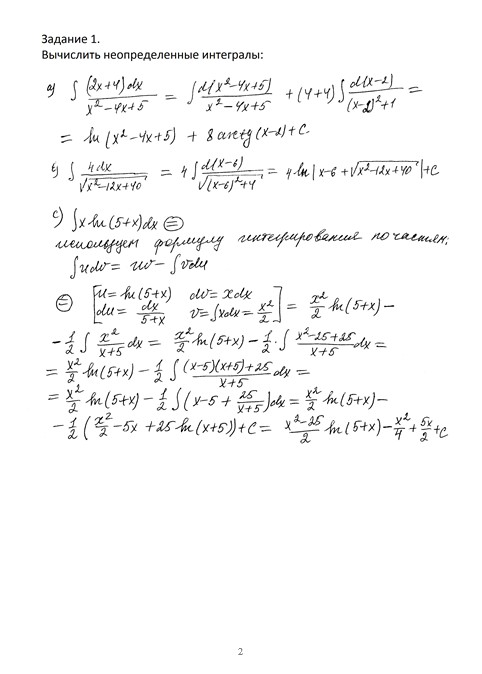 Задание 1.
Вычислить неопределенные интегралы:
a) ∫ (2x+4)dx / (x²−4x+5) = ∫ d(x²−4x+5) / (x²−4x+5) + (4+4) ∫ d(x−2) / ((x−2)²+1) =
= ln(x²−4x+5) + 8arctg(x−2)+C.
b) ∫ 4dx / √(x²−12x+40) = 4∫ d(x−6) / √((x−6)²+4) = 4ln|x−6+√(x²−12x+40)|+C
c) ∫x ln(5+x)dx =
используем формулу интегрирования по частям:
∫udv = uv − ∫vdu
= [u = ln(5+x) dv = xdx; du = dx/(5+x) v = ∫xdx = x²/2] = x²/2 ln(5+x) −
− 1/2 ∫ x²/(x+5) dx = x²/2 ln(5+x) − 1/2 · ∫ (x²−25+25)/(x+5) dx =
= x²/2 ln(5+x) − 1/2 ∫ ((x−5)(x+5)+25)/(x+5) dx =
= x²/2 ln(5+x) − 1/2 ∫(x−5 + 25/(x+5))dx = x²/2 ln(5+x) −
− 1/2 (x²/2 −5x +25 ln(x+5))+C = (x²−25)/2 ln(5+x) − x²/4 + 5x/2 +C
2